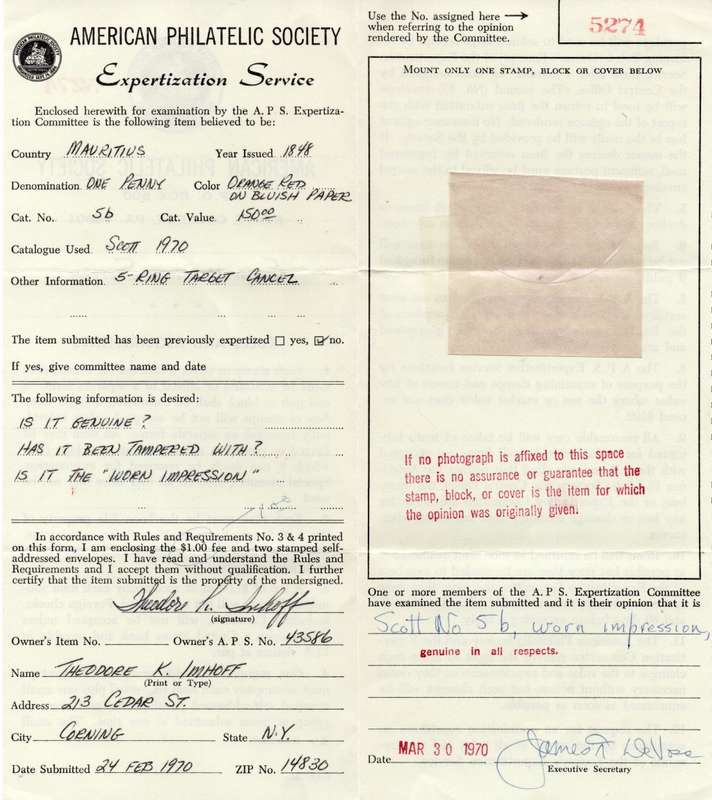 AMERICAN PHILATELIC SOCIETY
Expertization Service
Enclosed herewith for examination by the A. P. S. Expertiza-
tion Committee is the following item believed to be:
Country MAURITIUS Year Issued 1848
Denomination ONE PENNY Color ORANGE RED
ON BLUISH PAPER
Cat. No. 5b Cat. Value 150.00
Catalogue Used SCOTT 1970
Other Information 5-RING TARGET CANCEL
The item submitted has been previously expertized ☐ yes, ☑ no.
If yes, give committee name and date
The following information is desired:
IS IT GENUINE?
HAS IT BEEN TAMPERED WITH?
IS IT THE "WORN IMPRESSION"
In accordance with Rules and Requirements No. 3 & 4 printed
on this form, I am enclosing the $1.00 fee and two stamped self-
addressed envelopes. I have read and understand the Rules and
Requirements and I accept them without qualification. I further
certify that the item submitted is the property of the undersigned.
Theodore K. Imhoff
(signature)
Owner's Item No. Owner's A. P. S. No. 43586
Name THEODORE K. IMHOFF
(Print or Type)
Address 213 CEDAR ST.
City CORNING State N.Y.
Date Submitted 24 FEB 1970 ZIP No. 14830
Use the No. assigned here →
when referring to the opinion
rendered by the Committee.
5274
MOUNT ONLY ONE STAMP, BLOCK OR COVER BELOW
If no photograph is affixed to this space
there is no assurance or guarantee that the
stamp, block, or cover is the item for which
the opinion was originally given.
One or more members of the A. P. S. Expertization Committee
have examined the item submitted and it is their opinion that it is
Scott No 5b, worn impression,
genuine in all respects.
Date MAR 30 1970 James T DeVoss
Executive Secretary